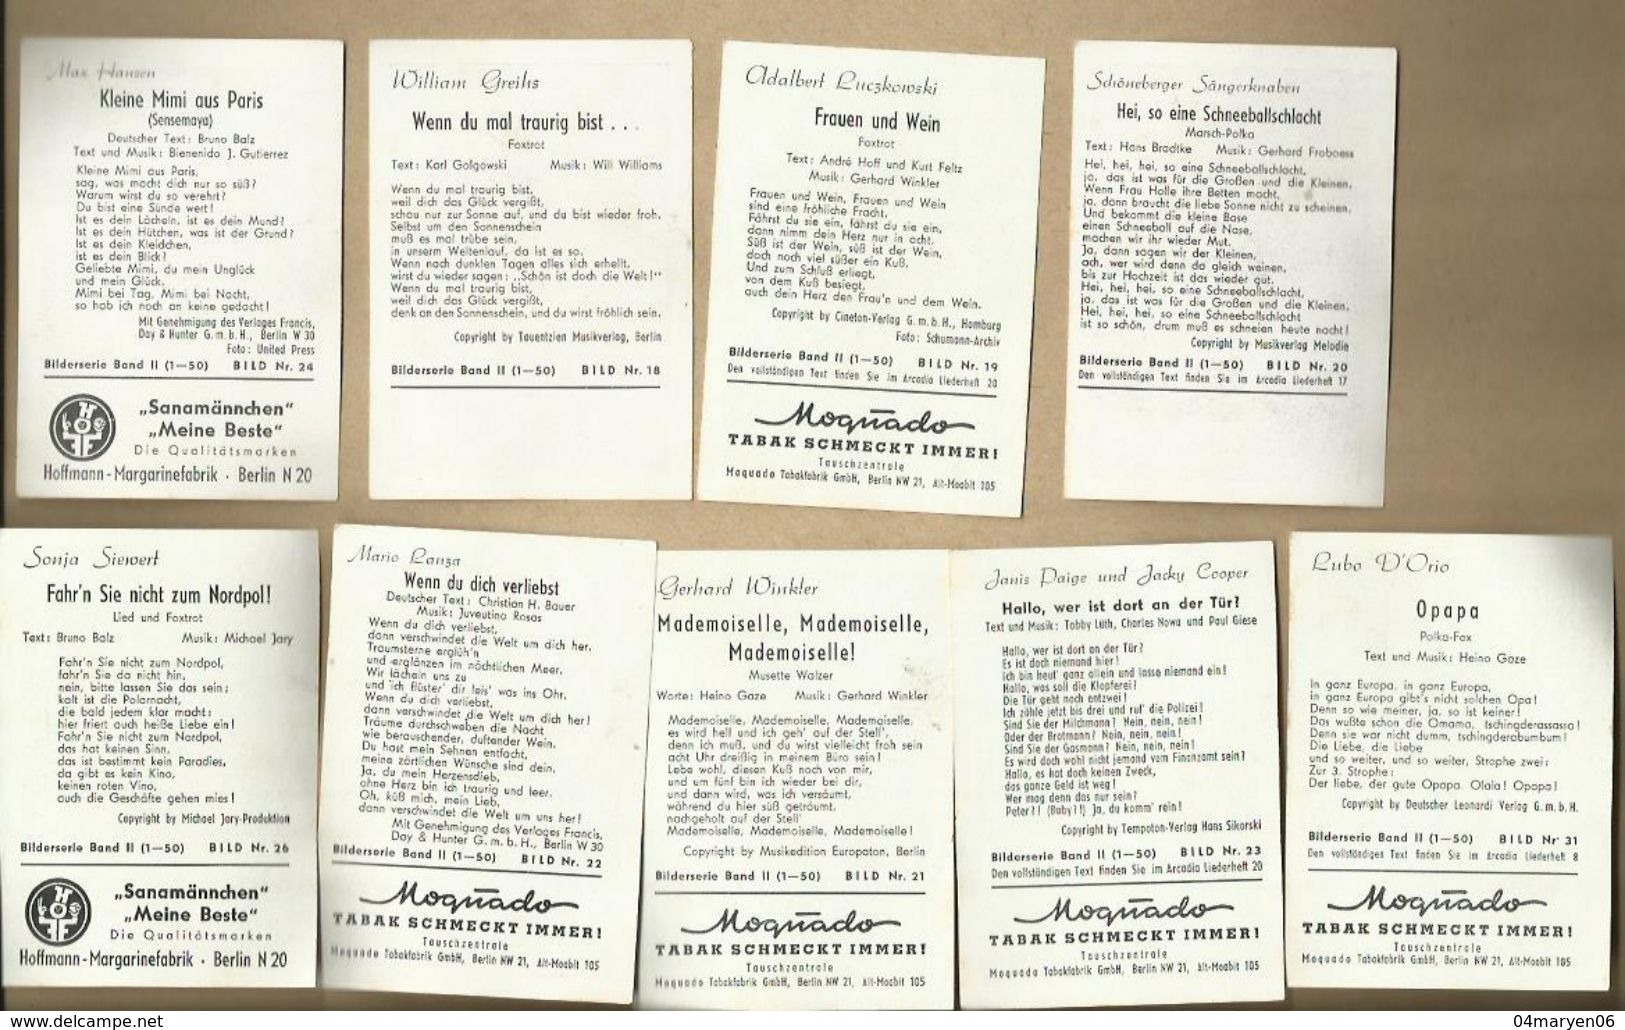 Max Hansen
Kleine Mimi aus Paris
(Sensemaya)
Deutscher Text: Bruno Balz
Text und Musik: Bienenido J. Gutierrez
Kleine Mimi aus Paris,
sag, was macht dich nur so süß?
Warum wirst du so verehrt?
Du bist eine Sünde wert!
Ist es dein Lächeln, ist es dein Mund?
Ist es dein Hütchen, was ist der Grund?
Ist es dein Kleidchen,
ist es dein Blick?
Geliebte Mimi, du mein Unglück
und mein Glück.
Mimi bei Tag, Mimi bei Nacht,
so hab ich noch an keine gedacht!
Mit Genehmigung des Verlages Francis,
Day & Hunter G. m. b. H., Berlin W 30
Foto: United Press
Bilderserie Band II (1—50) BILD Nr. 24
HOFF
„Sanamännchen"
„Meine Beste"
Die Qualitätsmarken
Hoffmann-Margarinefabrik · Berlin N 20
William Greihs
Wenn du mal traurig bist . . .
Foxtrot
Text: Karl Golgowski Musik: Will Williams
Wenn du mal traurig bist,
weil dich das Glück vergißt,
schau nur zur Sonne auf, und du bist wieder froh.
Selbst um den Sonnenschein
muß es mal trübe sein,
in unserm Weltenlauf, da ist es so.
Wenn nach dunklen Tagen alles sich erhellt,
wirst du wieder sagen: „Schön ist doch die Welt!"
Wenn du mal traurig bist,
weil dich das Glück vergißt,
denk an den Sonnenschein, und du wirst fröhlich sein.
Copyright by Tauentzien Musikverlag, Berlin
Bilderserie Band II (1—50) BILD Nr. 18
Adalbert Luczkowski
Frauen und Wein
Foxtrot
Text: André Hoff und Kurt Feltz
Musik: Gerhard Winkler
Frauen und Wein, Frauen und Wein
sind eine fröhliche Fracht.
Fährst du sie ein, fährst du sie ein,
dann nimm dein Herz nur in acht.
Süß ist der Wein, süß ist der Wein,
doch noch viel süßer ein Kuß.
Und zum Schluß erliegt,
von dem Kuß besiegt,
auch dein Herz den Frau'n und dem Wein.
Copyright by Cineton-Verlag G. m. b. H., Hamburg
Foto: Schumann-Archiv
Bilderserie Band II (1—50) BILD Nr. 19
Den vollständigen Text finden Sie im Arcadia Liederheft 20
Moquado
TABAK SCHMECKT IMMER!
Tauschzentrale
Moquado Tabakfabrik GmbH, Berlin NW 21, Alt-Moabit 105
Schöneberger Sängerknaben
Hei, so eine Schneeballschlacht
Marsch-Polka
Text: Hans Bradtke Musik: Gerhard Froboess
Hei, hei, hei, so eine Schneeballschlacht,
ja, das ist was für die Großen und die Kleinen.
Wenn Frau Holle ihre Betten macht,
ja, dann braucht die liebe Sonne nicht zu scheinen.
Und bekommt die kleine Base
einen Schneeball auf die Nase,
machen wir ihr wieder Mut.
Ja, dann sagen wir der Kleinen,
ach, wer wird denn da gleich weinen,
bis zur Hochzeit ist das wieder gut.
Hei, hei, hei, so eine Schneeballschlacht,
ja, das ist was für die Großen und die Kleinen,
Hei, hei, hei, so eine Schneeballschlacht
ist so schön, drum muß es schneien heute nacht!
Copyright by Musikverlag Melodie
Bilderserie Band II (1—50) BILD Nr. 20
Den vollständigen Text finden Sie im Arcadia Liederheft 17
Sonja Siewert
Fahr'n Sie nicht zum Nordpol!
Lied und Foxtrot
Text: Bruno Balz Musik: Michael Jary
Fahr'n Sie nicht zum Nordpol,
fahr'n Sie da nicht hin,
nein, bitte lassen Sie das sein;
kalt ist die Polarnacht,
die bald jedem klar macht:
hier friert auch heiße Liebe ein!
Fahr'n Sie nicht zum Nordpol,
das hat keinen Sinn,
das ist bestimmt kein Paradies,
da gibt es kein Kino,
keinen roten Vino,
auch die Geschäfte gehen mies!
Copyright by Michael Jary-Produktion
Bilderserie Band II (1—50) BILD Nr. 26
HOFF
„Sanamännchen"
„Meine Beste"
Die Qualitätsmarken
Hoffmann-Margarinefabrik · Berlin N 20
Mario Lanza
Wenn du dich verliebst
Deutscher Text: Christian H. Bauer
Musik: Juveutino Rosas
Wenn du dich verliebst,
dann verschwindet die Welt um dich her.
Traumsterne erglüh'n
und erglänzen im nächtlichen Meer.
Wir lächeln uns zu
und ich flüster' dir leis' was ins Ohr.
Wenn du dich verliebst,
dann verschwindet die Welt um dich her!
Träume durchschweben die Nacht
wie berauschender, duftender Wein.
Du hast mein Sehnen entfacht,
meine zärtlichen Wünsche sind dein.
Ja, du mein Herzensdieb,
ohne Herz bin ich traurig und leer.
Oh, küß mich, mein Lieb,
dann verschwindet die Welt um uns her!
Mit Genehmigung des Verlages Francis,
Day & Hunter G. m. b. H., Berlin W 30
Bilderserie Band II (1—50) BILD Nr. 22
Moquado
TABAK SCHMECKT IMMER!
Tauschzentrale
Moquado Tabakfabrik GmbH, Berlin NW 21, Alt-Moabit 105
Gerhard Winkler
Mademoiselle, Mademoiselle,
Mademoiselle!
Musette Walzer
Worte: Heino Gaze Musik: Gerhard Winkler
Mademoiselle, Mademoiselle, Mademoiselle,
es wird hell und ich geh' auf der Stell',
denn ich muß, und du wirst vielleicht froh sein
acht Uhr dreißig in meinem Büro sein!
Lebe wohl, diesen Kuß noch von mir,
und um fünf bin ich wieder bei dir,
und dann wird, was ich versäumt,
während du hier süß geträumt,
nachgeholt auf der Stell'
Mademoiselle, Mademoiselle, Mademoiselle!
Copyright by Musikedition Europaton, Berlin
Bilderserie Band II (1—50) BILD Nr. 21
Moquado
TABAK SCHMECKT IMMER!
Tauschzentrale
Moquado Tabakfabrik GmbH, Berlin NW 21, Alt-Moabit 105
Janis Paige und Jacky Cooper
Hallo, wer ist dort an der Tür?
Text und Musik: Tobby Lüth, Charles Nowa und Paul Giese
Hallo, wer ist dort an der Tür?
Es ist doch niemand hier!
Ich bin heut' ganz allein und lasse niemand ein!
Hallo, was soll die Klopferei?
Die Tür geht noch entzwei!
Ich zähle jetzt bis drei und ruf' die Polizei!
Sind Sie der Milchmann? Nein, nein, nein!
Oder der Brotmann? Nein, nein, nein!
Sind Sie der Gasmann? Nein, nein, nein!
Es wird doch wohl nicht jemand vom Finanzamt sein?
Hallo, es hat doch keinen Zweck,
das ganze Geld ist weg!
Wer mag denn das nur sein?
Peter?! (Baby?!) Ja, du komm' rein!
Copyright by Tempoton-Verlag Hans Sikorski
Bilderserie Band II (1—50) BILD Nr. 23
Den vollständigen Text finden Sie im Arcadia Liederheft 20
Moquado
TABAK SCHMECKT IMMER!
Tauschzentrale
Moquado Tabakfabrik GmbH, Berlin NW 21, Alt-Moabit 105
Lubo D'Orio
Opapa
Polka-Fox
Text und Musik: Heino Gaze
In ganz Europa, in ganz Europa,
in ganz Europa gibt's nicht solchen Opa!
Denn so wie meiner, ja, so ist keiner!
Das wußte schon die Omama, tschingderassassa!
Denn sie war nicht dumm, tschingderabumbum!
Die Liebe, die Liebe
und so weiter, und so weiter, Strophe zwei:
Zur 3. Strophe:
Der liebe, der gute Opapa. Olala! Opapa!
Copyright by Deutscher Leonardi Verlag G. m. b. H.
Bilderserie Band II (1—50) BILD Nr' 31
Den vollständigen Text finden Sie im Arcadia Liederheft 8
Moquado
TABAK SCHMECKT IMMER!
Tauschzentrale
Moquado Tabakfabrik GmbH, Berlin NW 21, Alt-Moabit 105
www.delcampe.net
04maryen06